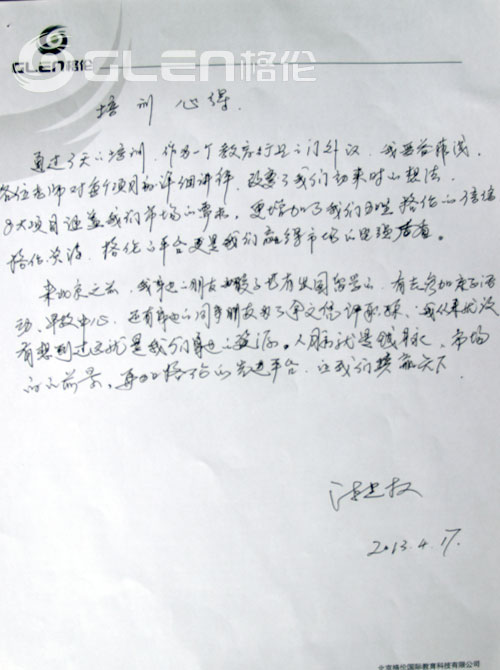 GLEN格伦
GLEN格伦
培训心得
通过7天的培训，作为一个教育行业的门外汉，我受益菲浅，
各位老师对每个项目的详细讲评，改变了我们初来时的想法，
8大项目涵盖我们市场的，更增加了我们选择格伦的信心
格伦，格伦的平台更是我们赢得市场的坚强后盾。
来北京之前，我身边的朋友也有出国留学的，有去参加亲子活
动、早教中心，还有身边的同事朋友为了论文评职称，我从来就没
有想到过这就是我们身边的资源。人脉就是钱脉，市场
的前景，再加格伦的先进平台，让我们赢天下
2013.4.17.
北京格伦国际教育科技有限公司